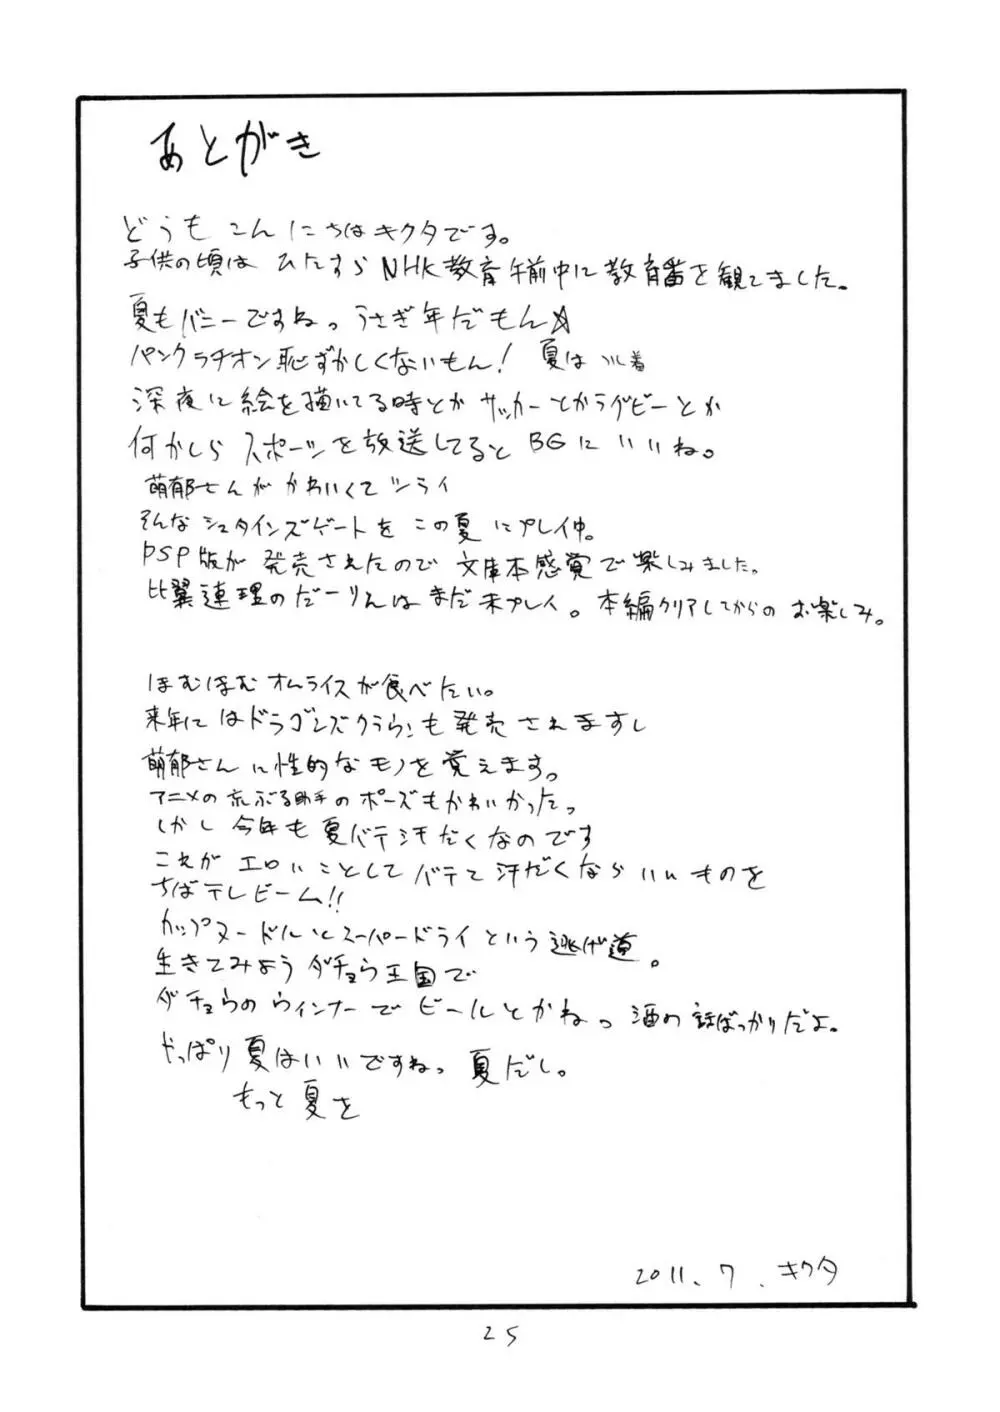 あとがき
どうもこんにちはキクタです。
子供の頃は ひたすらNHK教育午前中に教育番を観てました。
夏もバニーですねっ うさぎ年だもん☆
パンクラチオン恥ずかしくないもん! 夏は 着
深夜に絵を描いてる時とか サッカーとかラグビーとか
何かしらスポーツを放送してるとBGにいいね。
萌郁さんがかわいくてツライ
そんなシュタインズゲートをこの夏にプレイ中。
PSP版が発売されたので文庫本感覚で楽しみました。
比翼連理のだーりんはまだ未プレイ。本編クリアしてからのお楽しみ。
ほむほむオムライスが食べたい。
来年にはドラゴンズクラウンも発売されますし
萌郁さんに性的なモノを覚えます。
アニメの荒ぶる助手のポーズもかわいかったっ
しかし今年も夏バテ汗だくなのです
これがエロいことしてバテて汗だくならいいものを
ちばテレビーム!!
カップヌードルとスーパードライという逃げ道。
生きてみようダチョウ王国で
ダチョウのウィンナーでビールとかねっ 酒の話ばっかりだよ。
やっぱり夏はいいですねっ 夏だし。
もっと夏を
2011.7.キクタ
25